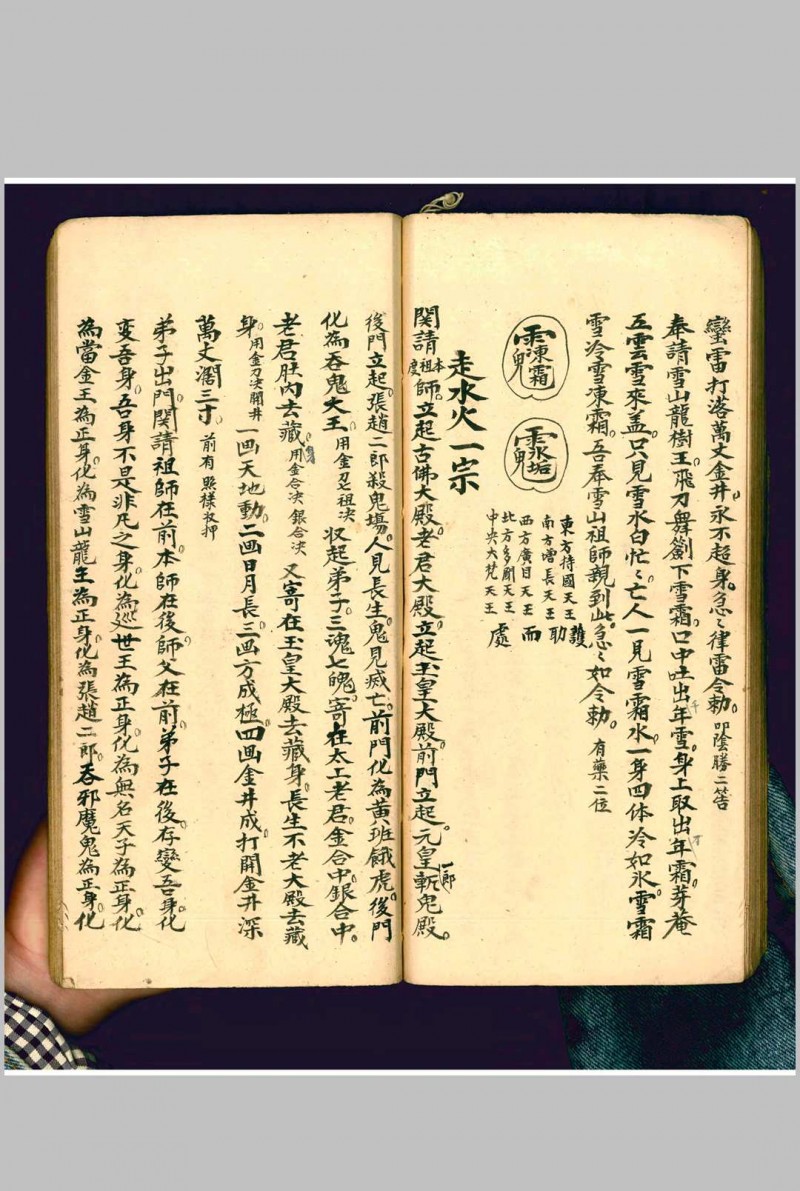 蠻雷打落萬丈金井。永不超身。急〻律雷令勅。叩陰勝二筶
奉請雪山龍樹王。飛刀舞劍下雪霜。口中吐出千年雪。身上取出万年霜。芽菴
五雲雪來盖。只見雪水白忙〻。亡人一見雪霜水。一身四体冷如氷。雪霜
雪冷雪凍霜。吾奉雪山祖師親到此。急〻如令勅。有藥二位
東方持國天王
南方增長天王
西方廣目天王
北方多聞天王
中央大梵天王
護助而處
走水火一宗
関請本祖度師。立起古佛大殿。老君大殿。立起玉皇大殿。前門立起。元皇一郎斬鬼殿。
後門立起。張趙二郎殺鬼塲。人見長生。鬼見滅亡。前門化為黃班餓虎。後門
化為吞鬼大王。用金刀祖决 収起弟子。三魂七魄。寄在太上老君。金合中。銀合中。
老君肚內去藏。用金合决 銀合决 又寄在玉皇大殿去藏身。長生不老大殿去藏
身。用金刀决開井 一画天地動。二画日月長。三画方成極。四画金井成。打開金井深
萬丈濶三寸。前有 照樣收押
弟子出門。関請祖師在前。本師在後。師父在前。弟子在後。存變吾身。化
変吾身。吾身不是非凡之身。化為巡世王為正身。化為無名天子為正身。化
為當金王為正身。化為雪山龍王為正身。化為張趙二郎。吞邪魔鬼為正身。化